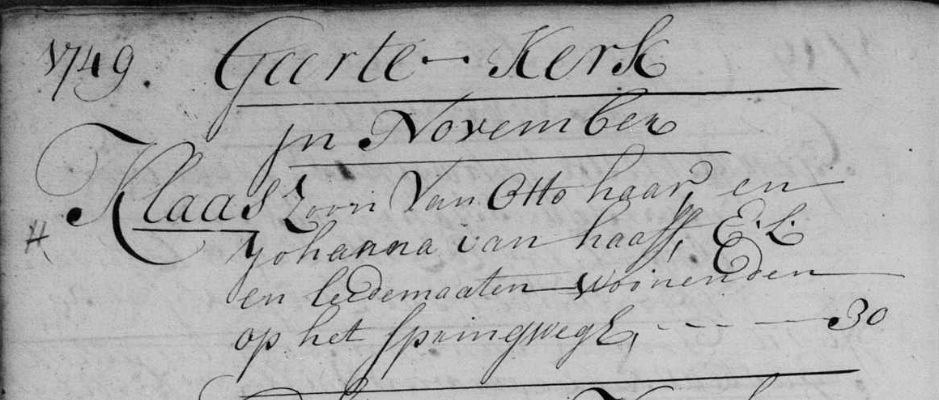 1749. Geerte - Kerk
jn November
Klaas Zoon Van Otto haar en
Johanna van haaff, E.L.
en ledemaaten woinenden
op het Springwegh, - - - 30